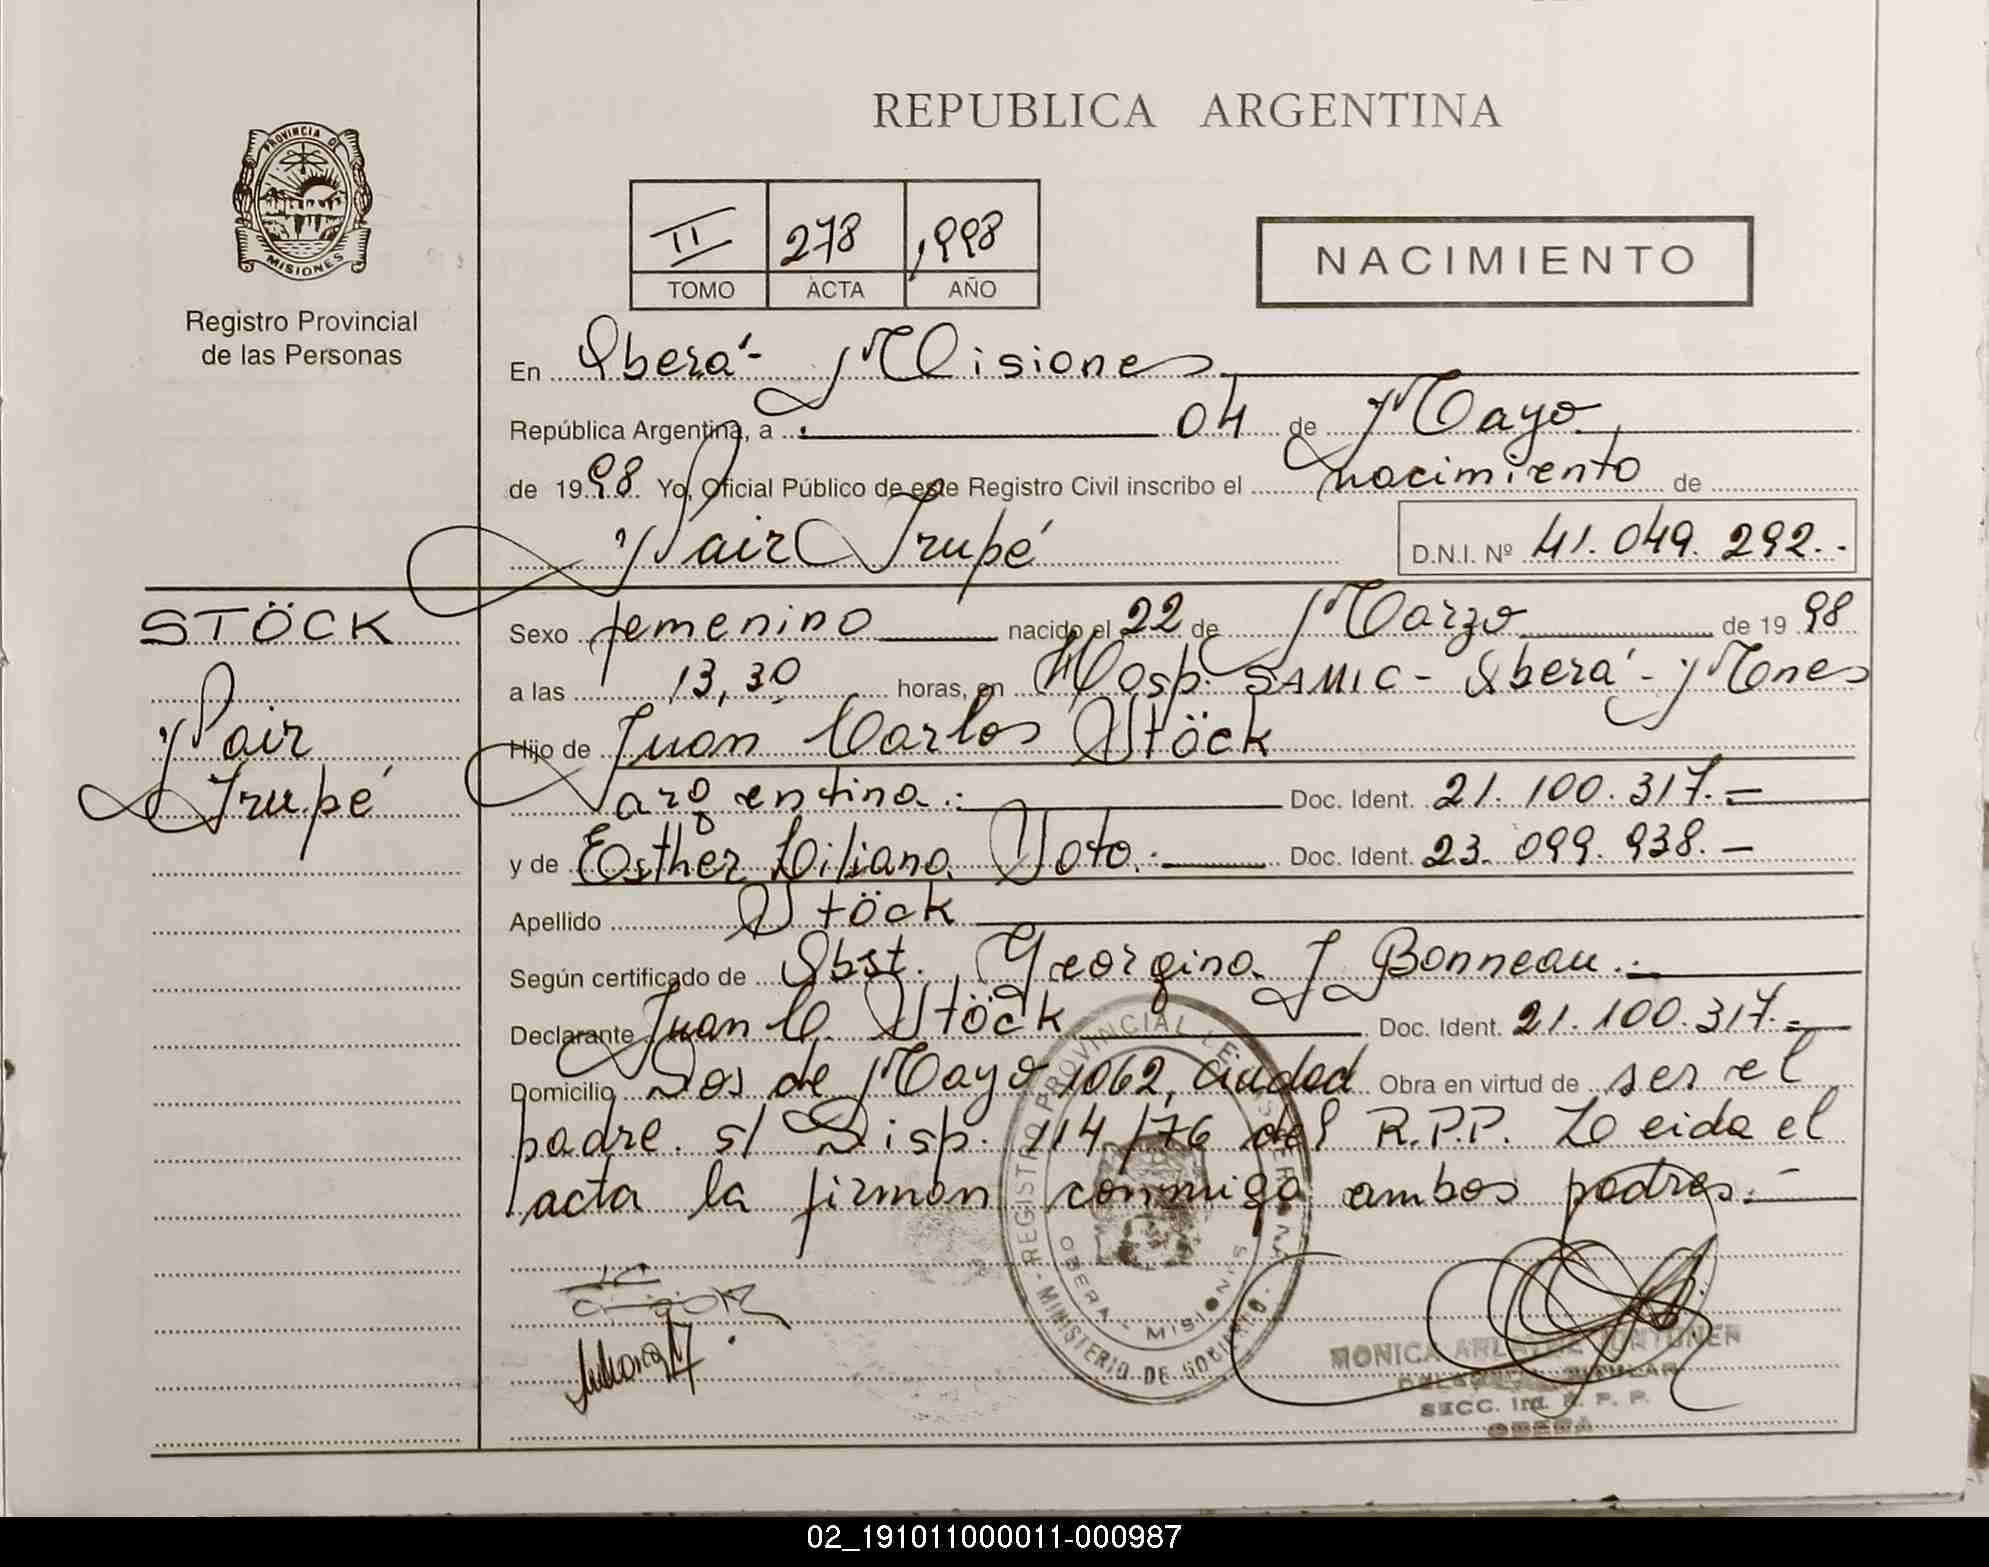 REPUBLICA ARGENTINA
PROVINCIA DE
MISIONES
Registro Provincial
de las Personas
II 278 1998
TOMO ACTA AÑO
NACIMIENTO
En Oberá - Misiones
República Argentina, a 04 de Mayo
de 1998 Yo, Oficial Público de este Registro Civil inscribo el nacimiento de
Nair Irupé D.N.I. Nº 41.049.292.-
STÖCK
Nair
Irupé
Sexo femenino nacido el 22 de Marzo de 1998
a las 13,30 horas, en Hosp. SAMIC - Oberá - Mnes
Hijo de Juan Carlos Stöck
argentina.- Doc. Ident. 21.100.317.=
y de Esther Liliana Doc. Ident. 23.099.938.-
Apellido Stöck
Según certificado de Obst. Georgina J Bonneau.-
Declarante Juan C. Stöck Doc. Ident. 21.100.317.=
Domicilio Dos de Mayo 1062, ciudad Obra en virtud de ser el
padre. s/ Disp. 114/76 del R.P.P. Leída el
acta la firman conmigo ambos padres.-
REGISTRO PROVINCIAL DE PERSONAS
OBERA - MISIONES
MINISTERIO DE GOBIERNO
MONICA
TITULAR
SECC. R. P. P.
OBERA
02_191011000011-000987